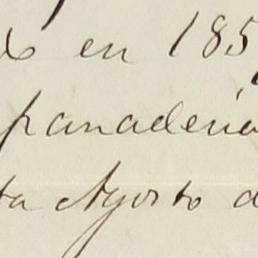 en 185
panaderia
ta Agosto d